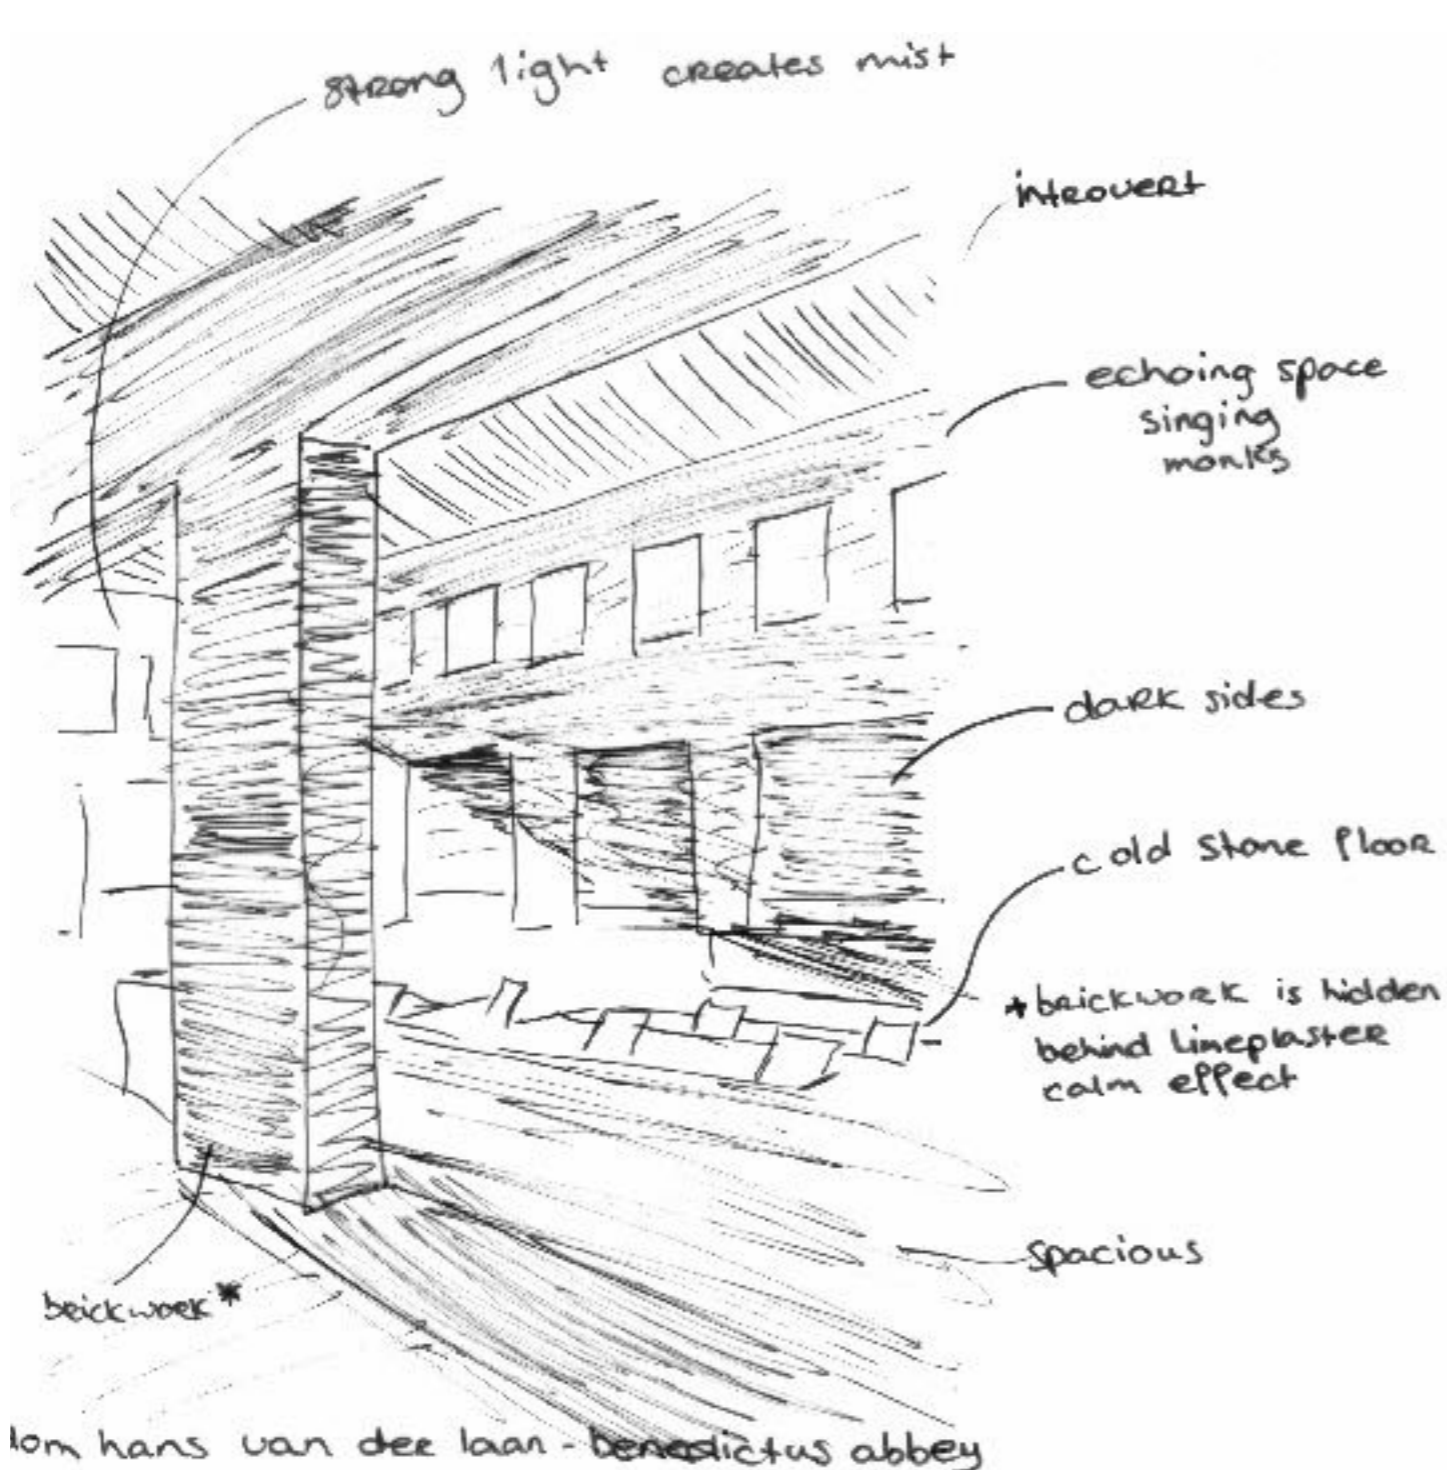 strong light creates mist
introvert
echoing space
singing
monks
dark sides
cold stone floor
*brickwork is hidden
behind limeplaster
calm effect
spacious
brickwork*
dom hans van der laan - benedictus abbey